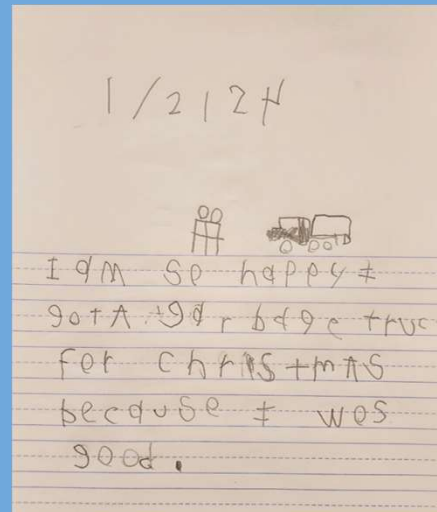 1/2124
I am se happy I
got A garbage truc
for christmAS
because I wos
good.